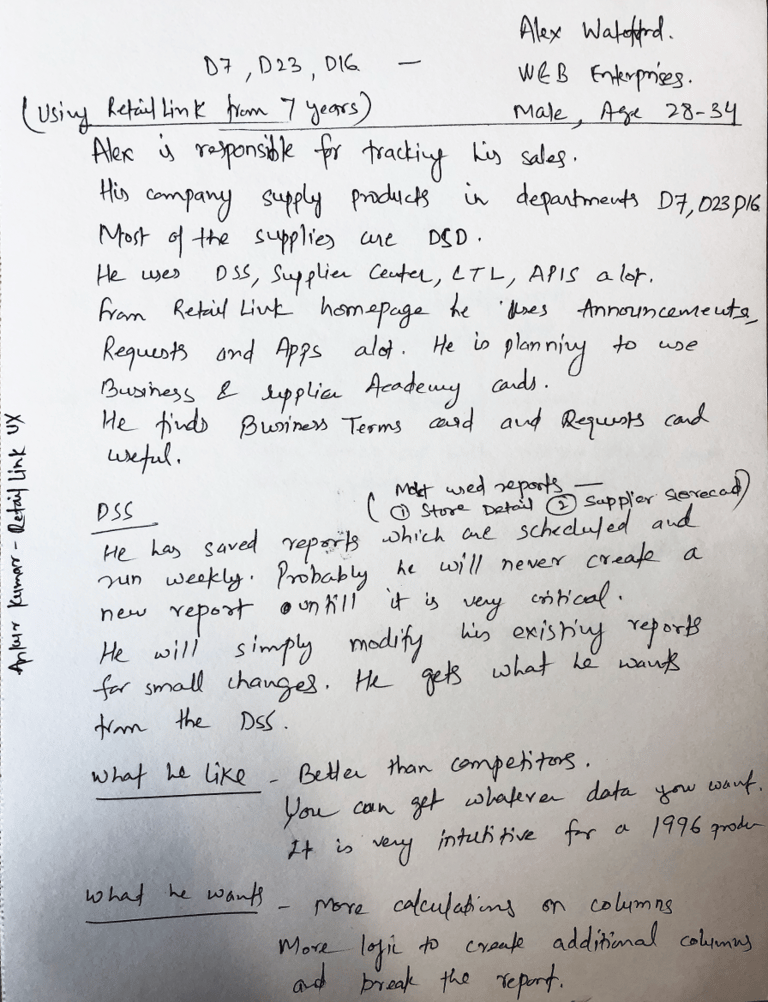 Alex Watofford.
D7, D23, D16 —
W&B Enterprises.
(Using Retail Link from 7 years)
Male, Age 28-34
Alex is responsible for tracking his sales.
His company supply products in departments D7, D23 D16
Most of the supplies are DSD.
He uses DSS, Supplier Center, LTL, APIS a lot.
from Retail Link homepage he uses Announcements,
Requests and Apps alot. He is planning to use
Business & supplier Academy cards.
He finds Business Terms card and Requests card
useful.
DSS
(Most used reports —
① Store Detail ② Supplier Scorecad)
He has saved reports which are scheduled and
run weekly. Probably he will never create a
new report untill it is very critical.
He will simply modify his existing reports
for small changes. He gets what he wants
from the DSS.
What he like - Better than competitors.
You can get whatever data you want.
It is very intutitive for a 1996 produ
What he wants - More calculations on columns
More logic to create additional columns
and break the report.
Ankur Kumar - Retail Link UX